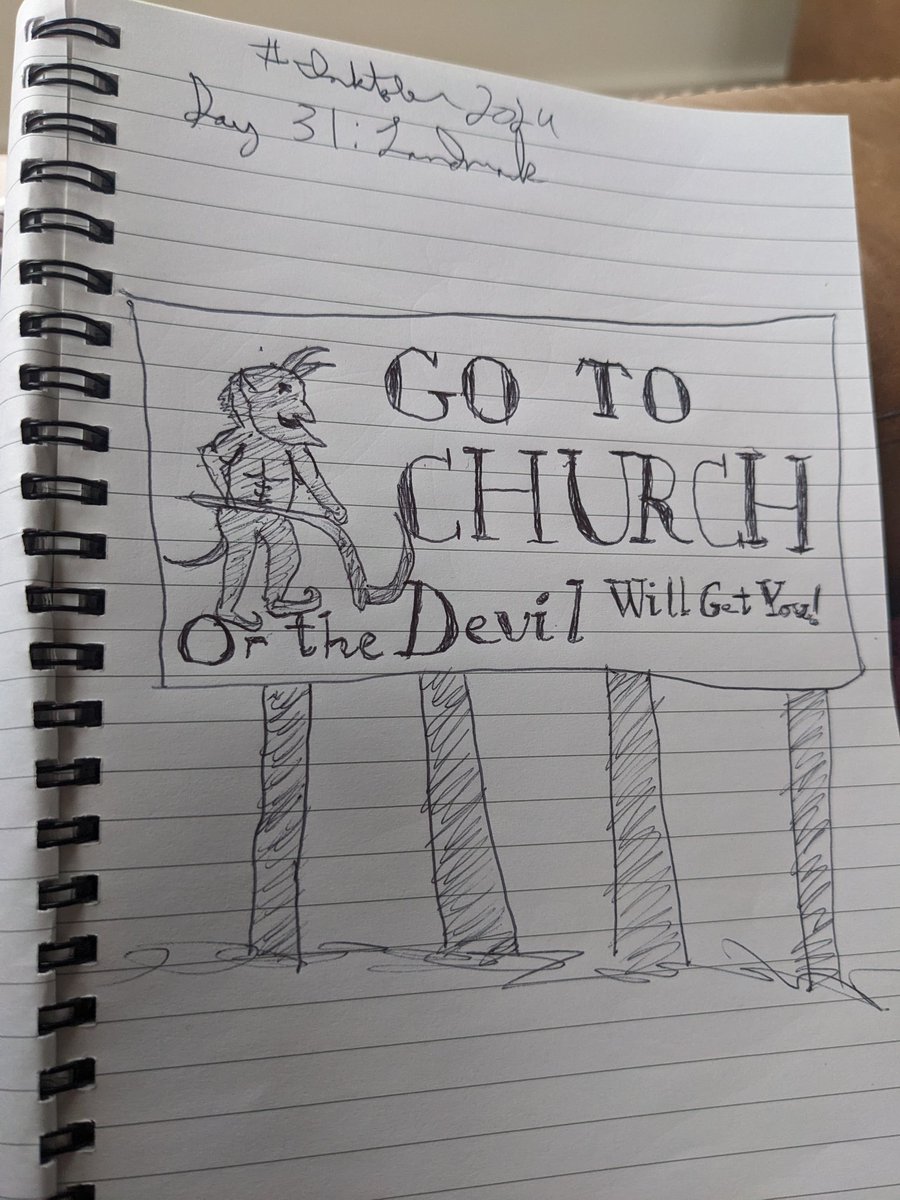 #Inktober 2024
Day 31: Landmark
GO TO
CHURCH
Or the Devil Will Get You!